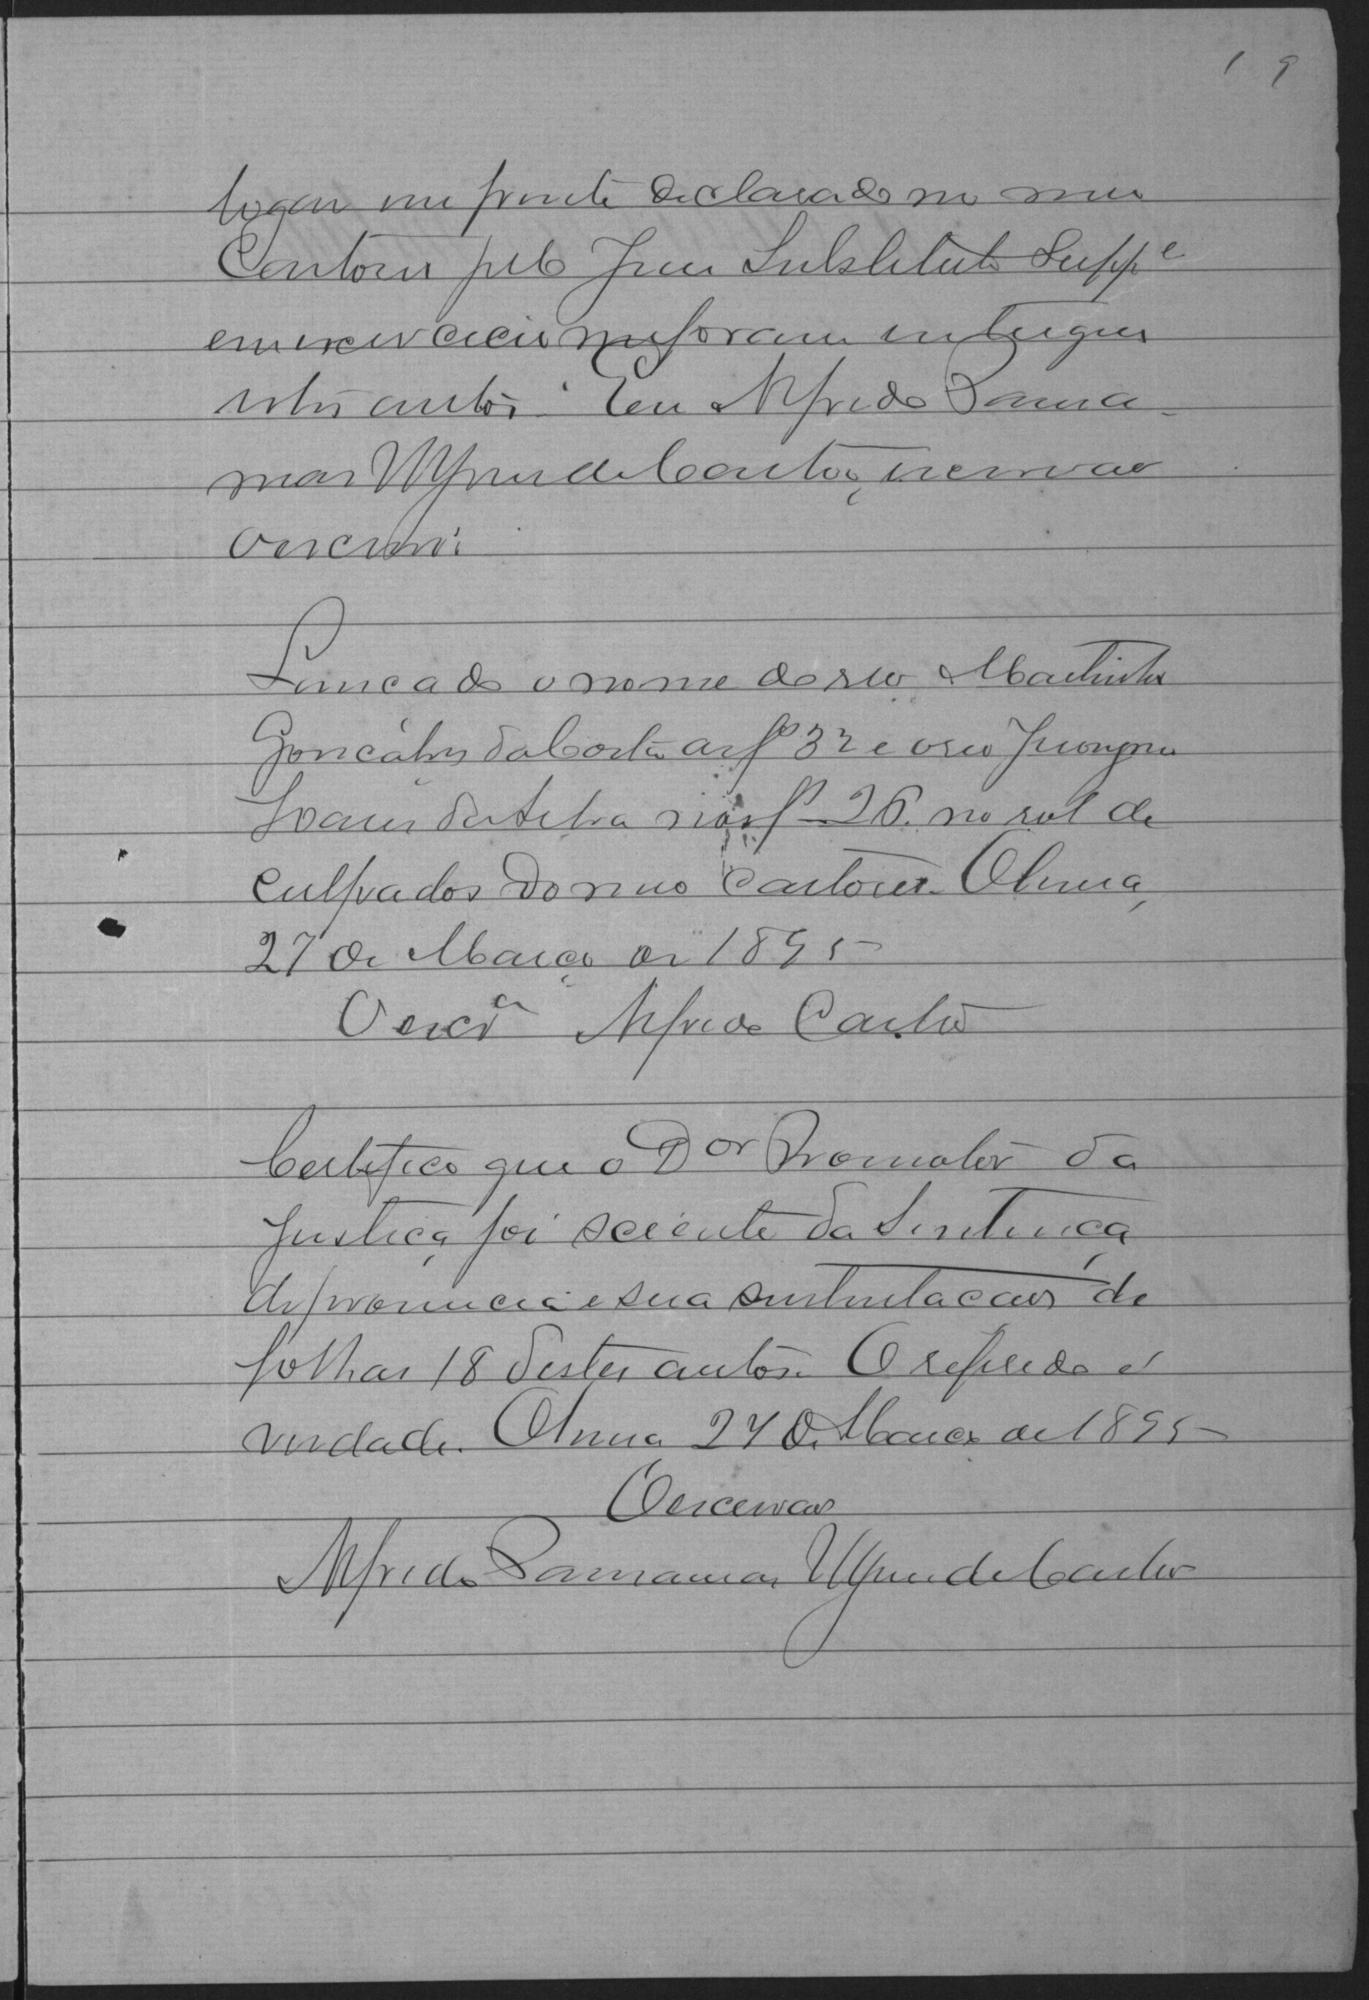 19
logar me fronte declarado no meu
Cartorio pelo Juiz Substituto Supp.e
em exercicio me foram entregues
estes autos. Eu Alfredo Parna-
mas de Castro, escrivão
o escrevi.
Lancado o nome do reo Martinho
Goncalves da Costa as fs 32 e o reo
Soares da Silva nas fs 26. no rol de
culpados do meo Cartorio. Olinda,
27 de Março de 1895
O escr.m Alfredo Castro
Certefico que o Dor Promotor da
Justiça foi sciente da Sentença
de pronuncia e sua sustentacão de
folhas 18 destes autos. O referido é
verdade. 27 de Março de 1895
O escrivão
Alfredo Parnamas de Castro